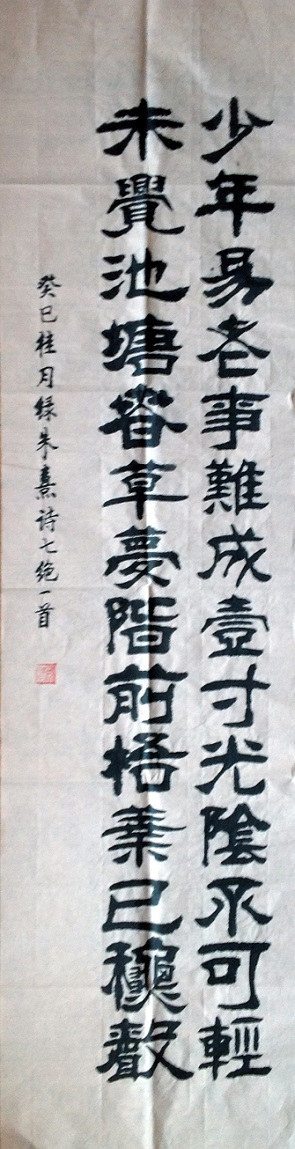 少年易老事難成壹寸光陰不可輕
未覺池塘春草夢階前梧葉已龝聲
癸巳桂月録朱熹诗七绝一首